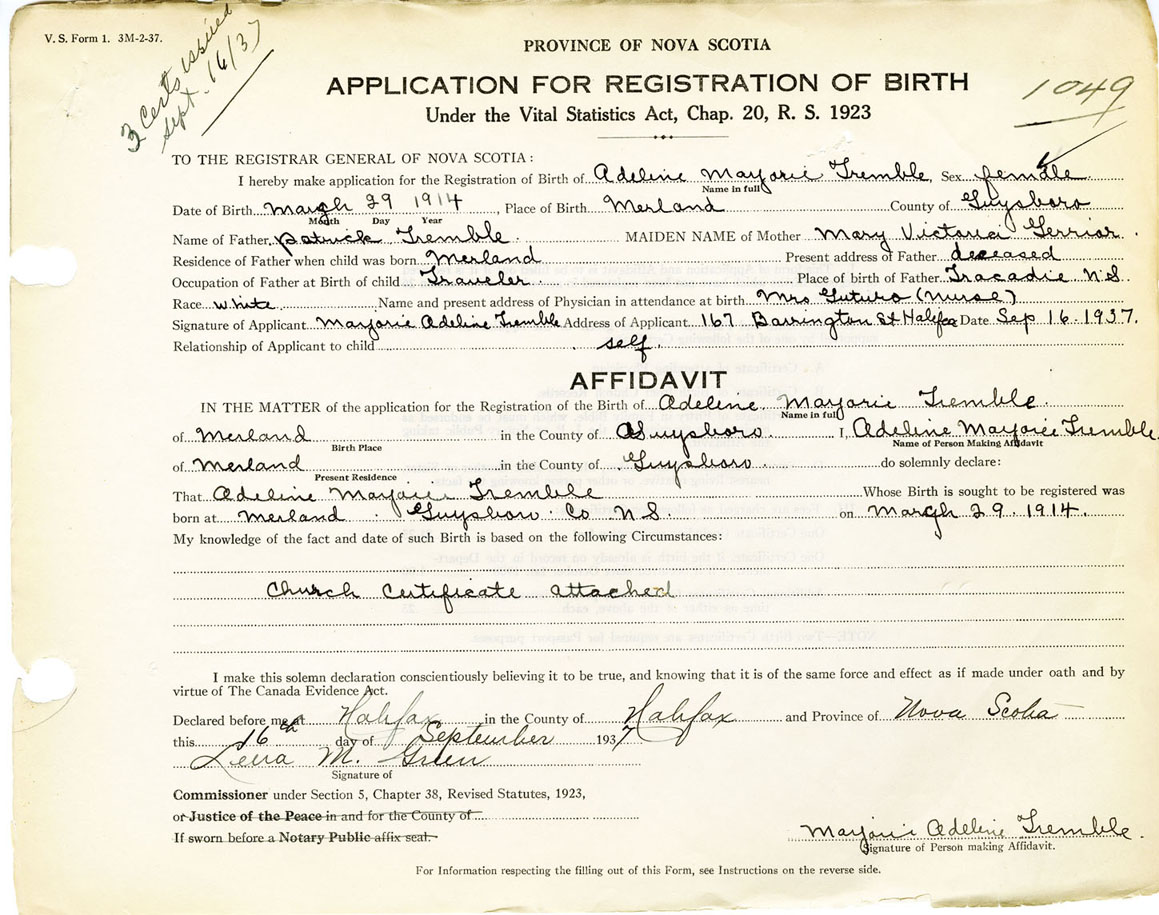 V. S. Form 1. 3M-2-37.
3 Certs issued
Sept. 16/37
PROVINCE OF NOVA SCOTIA
APPLICATION FOR REGISTRATION OF BIRTH
1049
Under the Vital Statistics Act, Chap. 20, R. S. 1923
TO THE REGISTRAR GENERAL OF NOVA SCOTIA:
I hereby make application for the Registration of Birth of Adeline Marjorie Tremble, Sex female
Name in full
Date of Birth March 29 1914, Place of Birth Merland County of Guysboro
Month Day Year
Name of Father Patrick Tremble MAIDEN NAME of Mother Mary Victoria Gerrior.
Residence of Father when child was born Merland Present address of Father deceased
Occupation of Father at Birth of child Traveler Place of birth of Father Tracadie N.S.
Race white Name and present address of Physician in attendance at birth Mrs (Nurse)
Signature of Applicant Marjorie Adeline Tremble Address of Applicant 167 Barrington St Halifax Date Sep 16. 1937.
Relationship of Applicant to child self.
AFFIDAVIT
IN THE MATTER of the application for the Registration of the Birth of Adeline Marjorie Tremble.
Name in full
of Merland in the County of Guysboro. I, Adeline Marjorie Tremble
Birth Place Name of Person Making Affidavit
of Merland in the County of Guysboro do solemnly declare:
Present Residence
That Adeline Marjorie Tremble Whose Birth is sought to be registered was
born at Merland Guysboro Co N.S. on March 29. 1914.
My knowledge of the fact and date of such Birth is based on the following Circumstances:
Church Certificate attached
I make this solemn declaration conscientiously believing it to be true, and knowing that it is of the same force and effect as if made under oath and by
virtue of The Canada Evidence Act.
Declared before me at Halifax in the County of Halifax and Province of Nova Scotia
this 16th day of September 1937
Lena M. Green
Signature of
Commissioner under Section 5, Chapter 38, Revised Statutes, 1923,
or Justice of the Peace in and for the County of
If sworn before a Notary Public affix seal.
Marjorie Adeline Tremble.
Signature of Person making Affidavit.
For Information respecting the filling out of this Form, see Instructions on the reverse side.